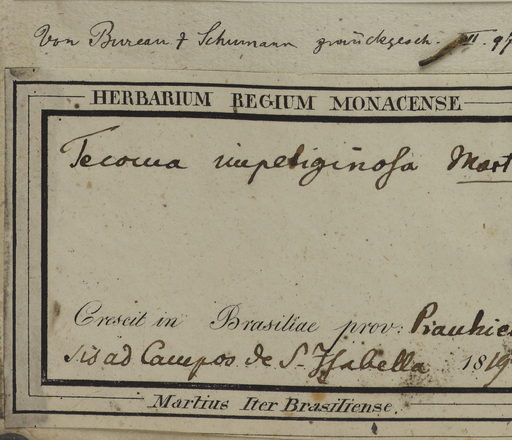 Von Bureau & Schumann zurückgesch. II. 97
HERBARIUM REGIUM MONACENSE
Tecoma impetiginosa Mart
Crescit in Brasiliae prov: Piauhien
sis ad Campos de S. Isabella 1819
Martius Iter Brasiliense.